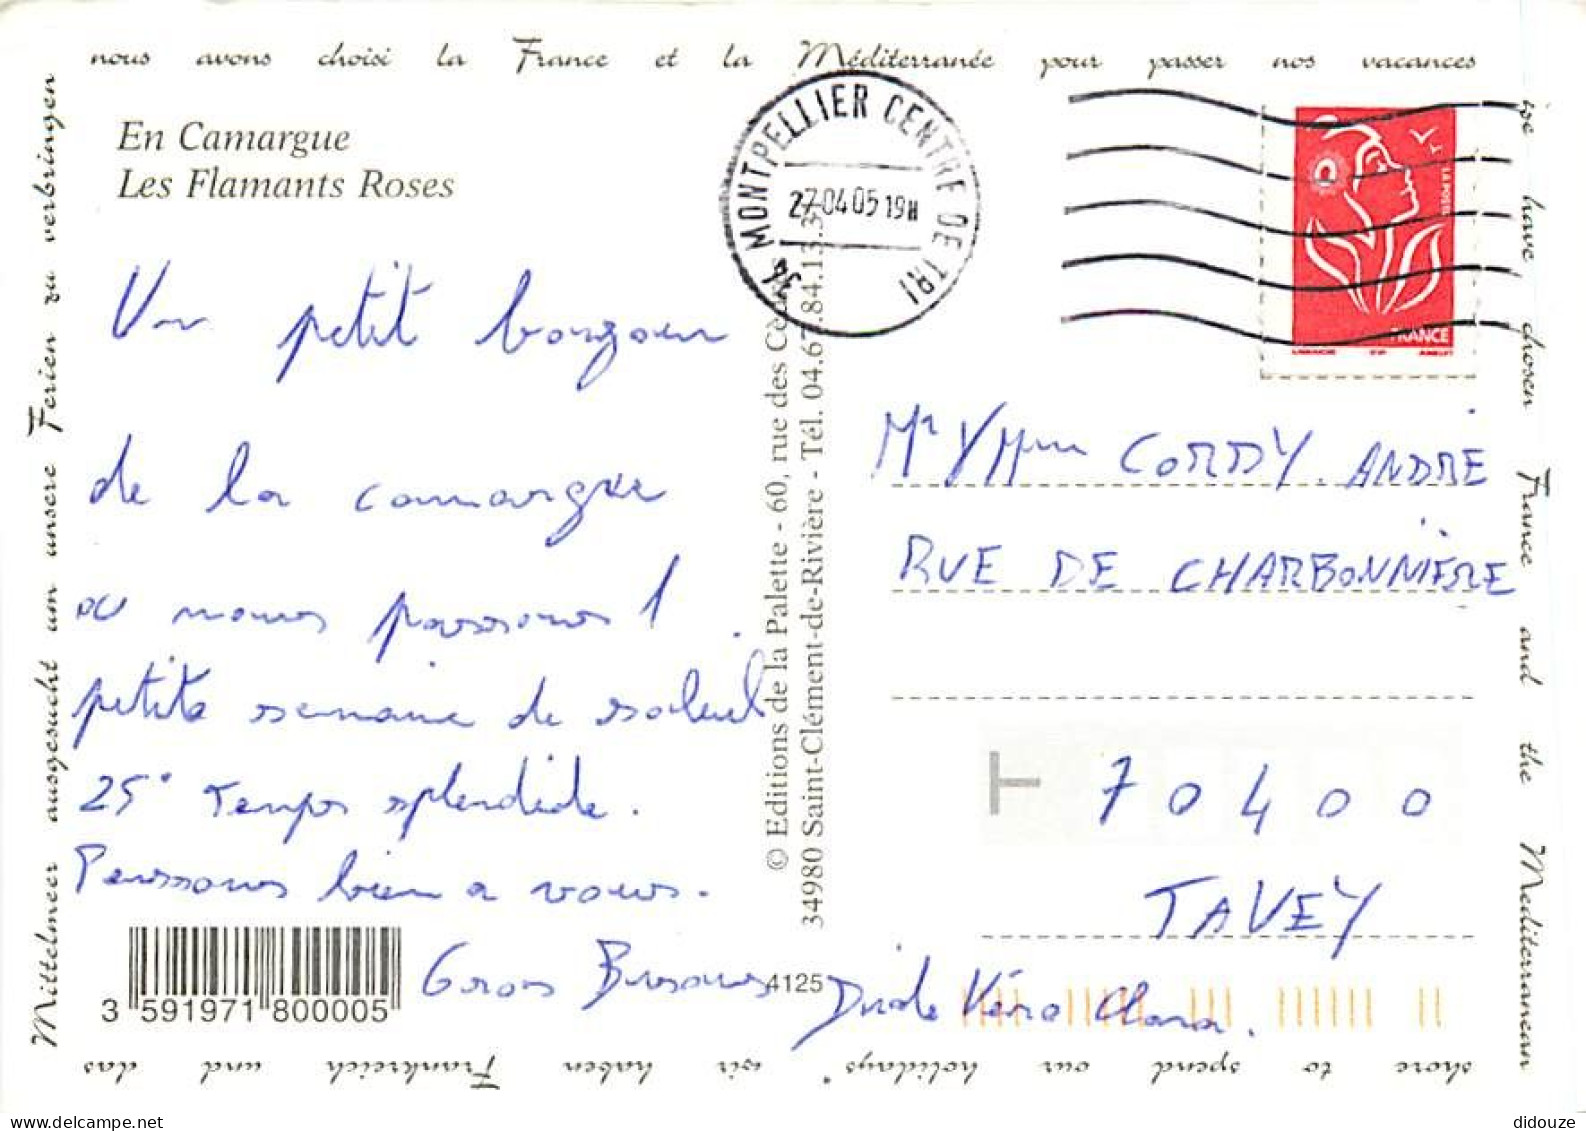 nous avons choisi la France et la Méditerranée pour passer nos vacances
En Camargue
Les Flamants Roses
34 MONTPELLIER CENTRE DE TRI
27-04-05 19H
LA POSTE
FRANCE
Un petit bonjour
de la camargue
ou nous passons 1
petite semaine de soleil
25° Temps splendide.
Pensons bien a vous.
Gros Bisous
Véro Clara.
Mr Mme CORDY. ANDRE
RUE DE CHARBONNIERE
70400
TAVEY
© Editions de la Palette - 60, rue des
34980 Saint-Clément-de-Rivière - Tél. 04.67.84.13.3
4125
3 591971 800005
we have chosen France and the Mediterranean
shore to spend our holidays"
wir haben Frankreich und das
Mittelmeer ausgesucht um unsere Ferien zu verbringen
didouze